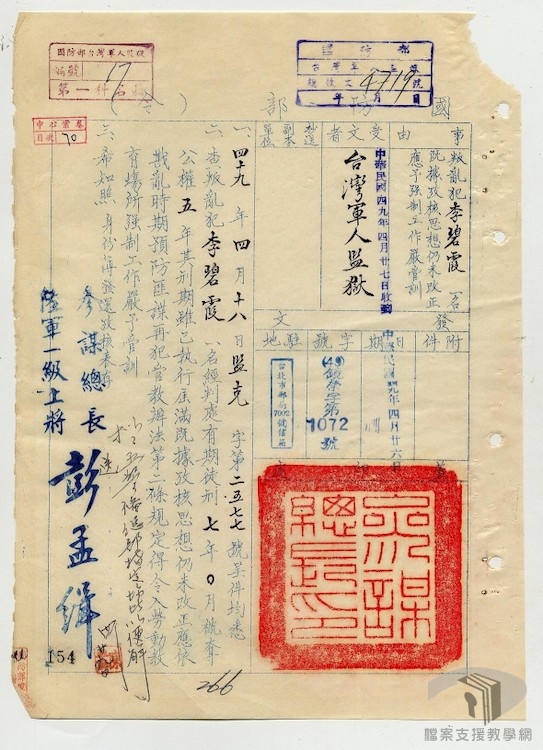 國防部台灣軍人監獄
編號 17
第一科
國防部
4719 號
年 月 日
國防部（令）
事由
叛亂犯李碧霞一名
既據攷核思想仍未改正
應予强制工作嚴管訓
受文者
中華民國四九年四月廿七日收到
台灣軍人監獄
抄送
副本
單位
附件
發文
日期
中華民國四九年四月廿六日
字號
(49)
1072
號
駐地
台北市郵局
7002
號信箱
參謀總長印
中社案卷
目次 70
一、四十九年四月十八日監克字第二五七七號呈件均悉
二、查叛亂犯李碧霞一名經判處有期徒刑七年0月褫奪
公權五年其刑期雖已執行屆滿既據攷核思想仍未改正應依
戡亂時期預防匪諜再犯管教辦法第二條規定得令入勞動教
育場所强制工作嚴予管訓
三、希知照
參謀總長
陸軍一級上將 彭孟緝
154
266
檔案支援教學網